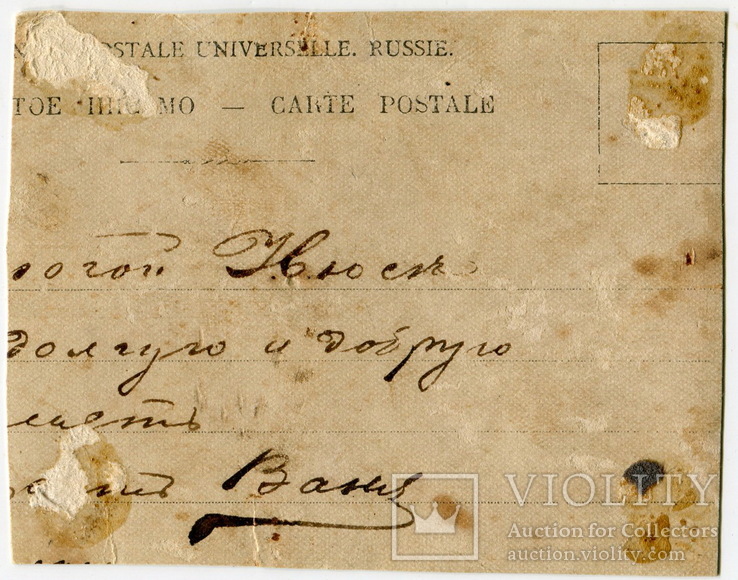 POSTALE UNIVERSELLE. RUSSIE.
ТОЕ ПИСЬМО — CARTE POSTALE
рогой Нюсѣ
долгую и добрую
память
Ваня
VIOLITY
Auction for Collectors
auction.violity.com